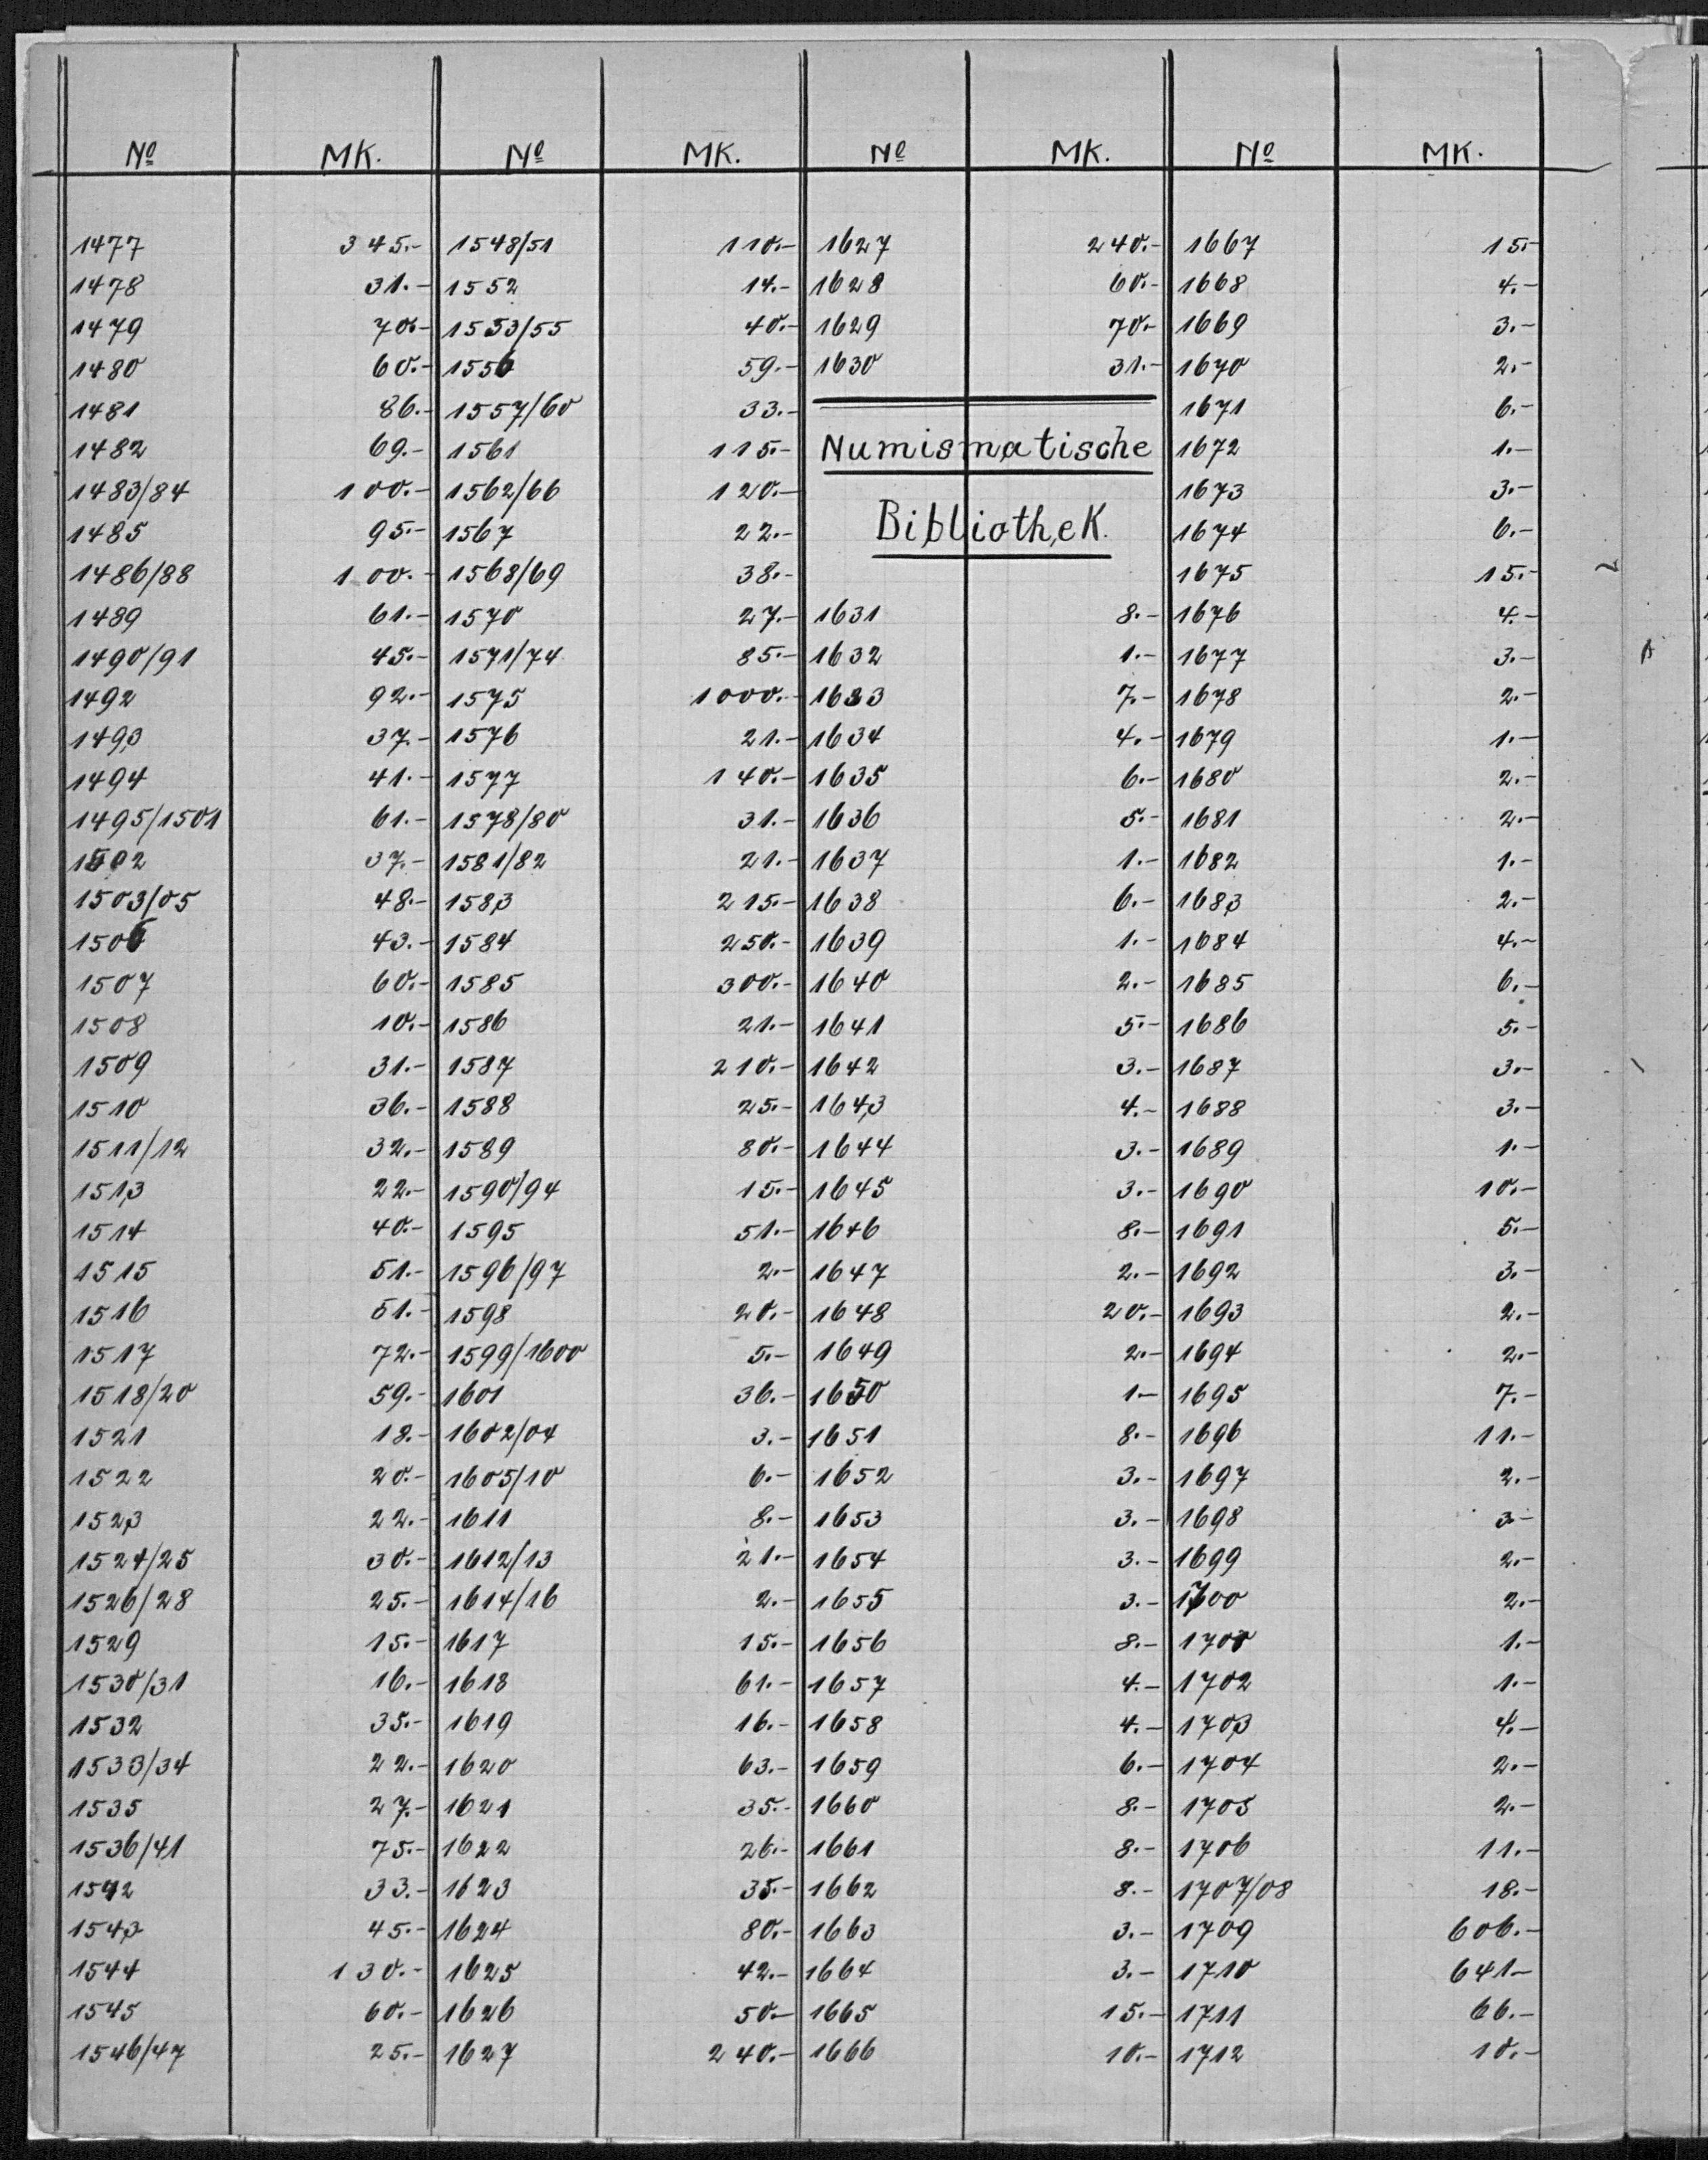 Nº MK. Nº MK. Nº MK. Nº MK.
1477 345.- 1548/51 110.- 1627 240.- 1667 15.-
1478 31.- 1552 14.- 1628 60.- 1668 4.-
1479 70.- 1553/55 40.- 1629 70.- 1669 3.-
1480 60.- 1556 59.- 1630 31.- 1670 2.-
1481 86.- 1557/60 33.- 1671 6.-
1482 69.- 1561 115.- Numismatische 1672 1.-
1483/84 100.- 1562/66 120.- 1673 3.-
1485 95.- 1567 22.- Bibliothek. 1674 6.-
1486/88 100.- 1568/69 38.- 1675 15.-
1489 61.- 1570 27.- 1631 8.- 1676 4.-
1490/91 45.- 1571/74 85.- 1632 1.- 1677 3.-
1492 92.- 1575 1000.- 1633 7.- 1678 2.-
1493 37.- 1576 21.- 1634 4.- 1679 1.-
1494 41.- 1577 140.- 1635 6.- 1680 2.-
1495/1501 61.- 1578/80 31.- 1636 5.- 1681 2.-
1502 37.- 1581/82 21.- 1637 1.- 1682 1.-
1503/05 48.- 1583 215.- 1638 6.- 1683 2.-
1506 43.- 1584 250.- 1639 1.- 1684 4.-
1507 60.- 1585 300.- 1640 2.- 1685 6.-
1508 10.- 1586 21.- 1641 5.- 1686 5.-
1509 31.- 1587 210.- 1642 3.- 1687 3.-
1510 36.- 1588 25.- 1643 4.- 1688 3.-
1511/12 32.- 1589 80.- 1644 3.- 1689 1.-
1513 22.- 1590/94 15.- 1645 3.- 1690 10.-
1514 40.- 1595 51.- 1646 8.- 1691 5.-
1515 51.- 1596/97 2.- 1647 2.- 1692 3.-
1516 51.- 1598 20.- 1648 20.- 1693 2.-
1517 72.- 1599/1600 5.- 1649 2.- 1694 2.-
1518/20 59.- 1601 36.- 1650 1.- 1695 7.-
1521 18.- 1602/04 3.- 1651 8.- 1696 11.-
1522 20.- 1605/10 6.- 1652 3.- 1697 2.-
1523 22.- 1611 8.- 1653 3.- 1698 3.-
1524/25 30.- 1612/13 21.- 1654 3.- 1699 2.-
1526/28 25.- 1614/16 2.- 1655 3.- 1700 2.-
1529 15.- 1617 15.- 1656 8.- 1701 1.-
1530/31 16.- 1618 61.- 1657 4.- 1702 1.-
1532 35.- 1619 16.- 1658 4.- 1703 4.-
1533/34 22.- 1620 63.- 1659 6.- 1704 2.-
1535 27.- 1621 35.- 1660 8.- 1705 2.-
1536/41 75.- 1622 26.- 1661 8.- 1706 11.-
1542 33.- 1623 35.- 1662 8.- 1707/08 18.-
1543 45.- 1624 80.- 1663 3.- 1709 606.-
1544 130.- 1625 42.- 1664 3.- 1710 641.-
1545 60.- 1626 50.- 1665 15.- 1711 66.-
1546/47 25.- 1627 240.- 1666 10.- 1712 10.-